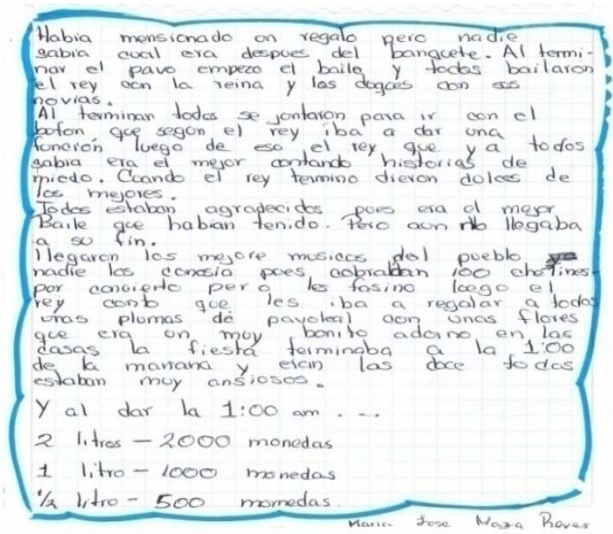 Habia mensionado on regalo pero nadie
sabia cual era despues del banquete. Al termi-
nar el pavo empezo el baile y todos bailaron
el rey con la reina y los doqces con sos
novias.
Al terminar todos se jontaron para ir con el
bofon que segon el rey iba a dar una
función luego de eso el rey que ya todos
sabia era el mejor contando historias de
miedo. Coando el rey termino dieron dolces de
los mejores.
Todos estaban agradecidos poes era el mejor
Baile que habian tenido. Pero aun no llegaba
a so fin.
llegaron los mejore mosicos del pueblo
nadie los conosia poes cobraban 100
por concierto pero les fasino loego el
rey conto que les iba a regalar a todos
unas plumas de pavoleal con unas flores
que era on moy bonito adorno en las
casas la fiesta terminaba a la 1:00
de la mañana y eran las doce todos
estaban moy ansiosos.
Y al dar la 1:00 am . . . .
2 litros - 2000 monedas
1 litro - 1000 monedas
1/2 litro - 500 momedas.
Maria Jose Maza Reyes